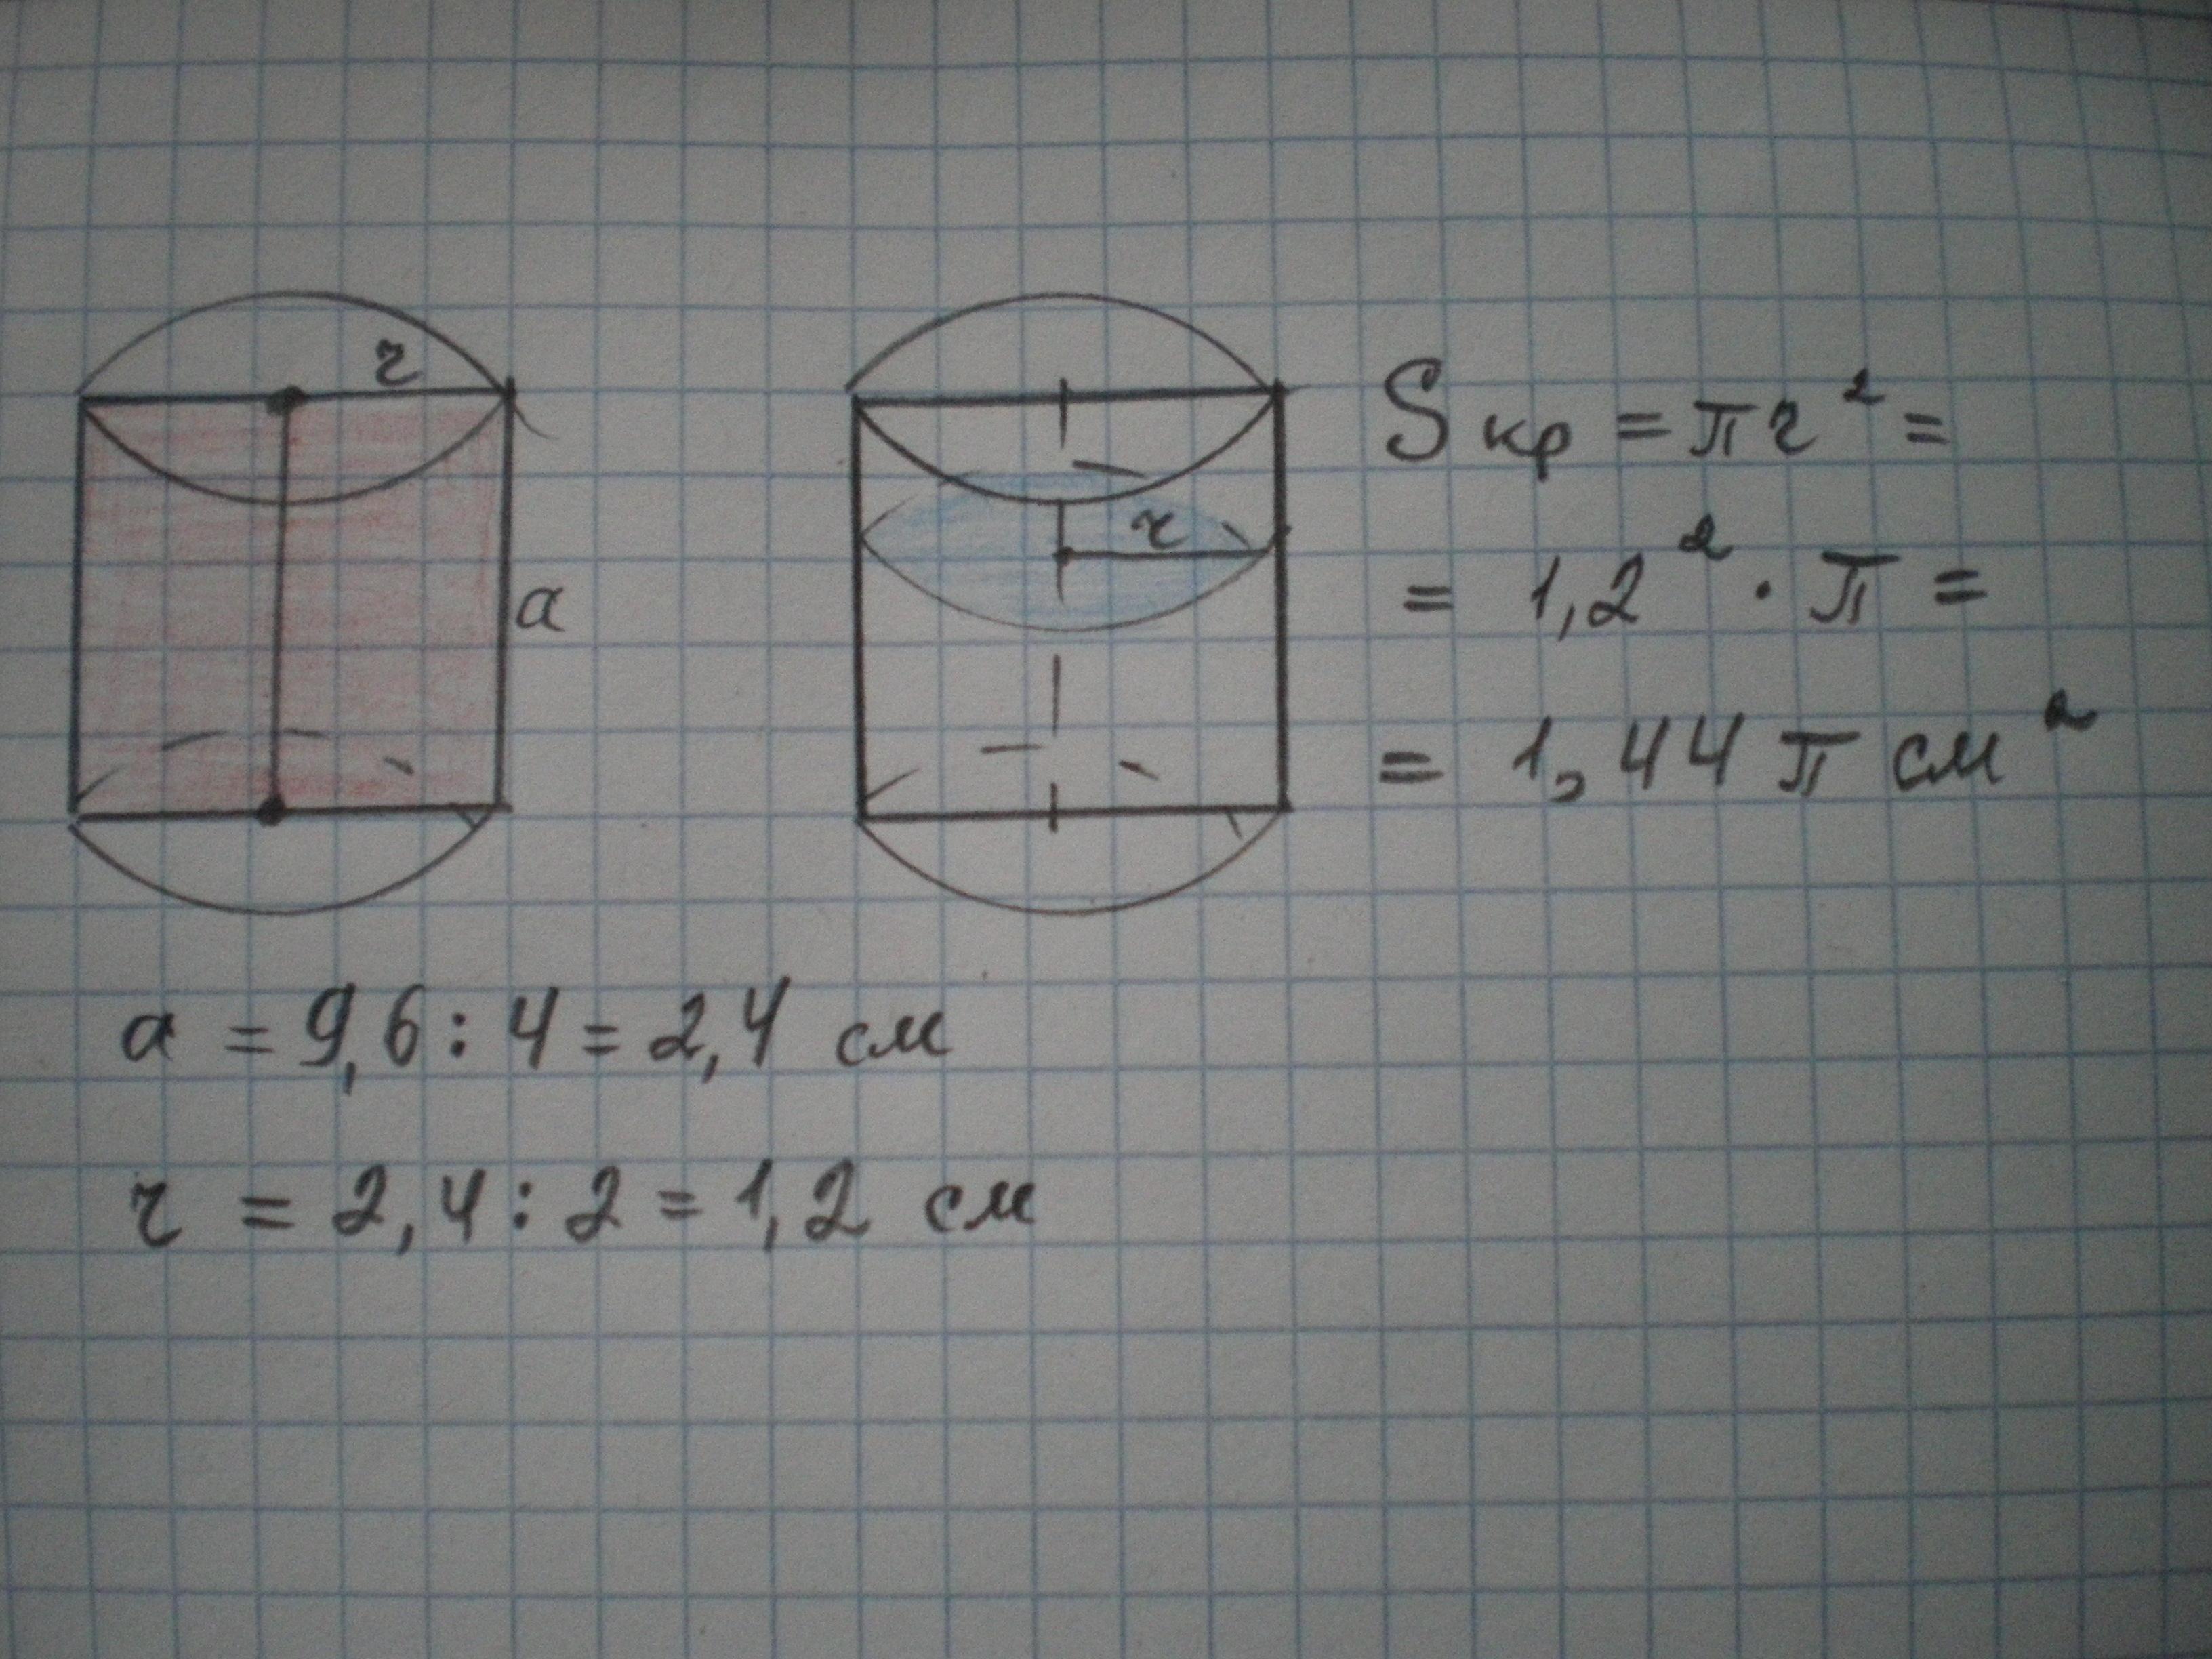 r
a
r
Sкр = πr² =
= 1,2² · π =
= 1,44 π см²
a = 9,6 : 4 = 2,4 см
r = 2,4 : 2 = 1,2 см